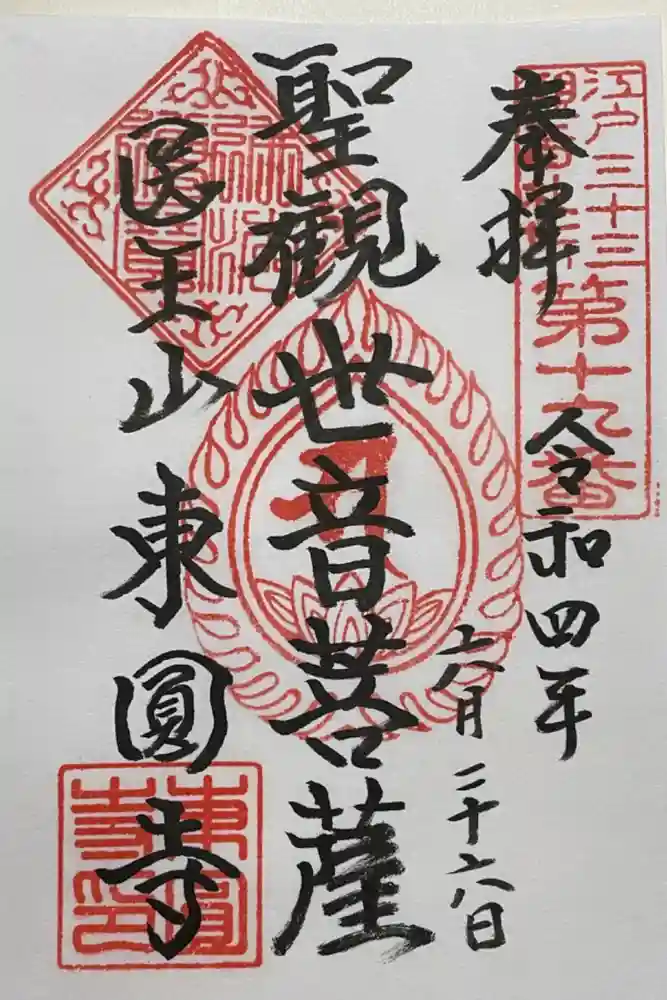 江戸三十三
観音札所第十九番
奉拝
令和四年
六月二十六日
聖観世音菩薩
医王山東圓寺
東圓寺印